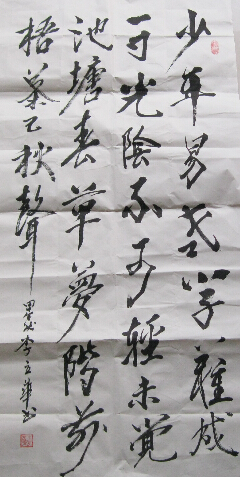 少年易老学難成
一寸光陰不可輕未覺
池塘春草夢階前
梧葉已秋聲
李立華书